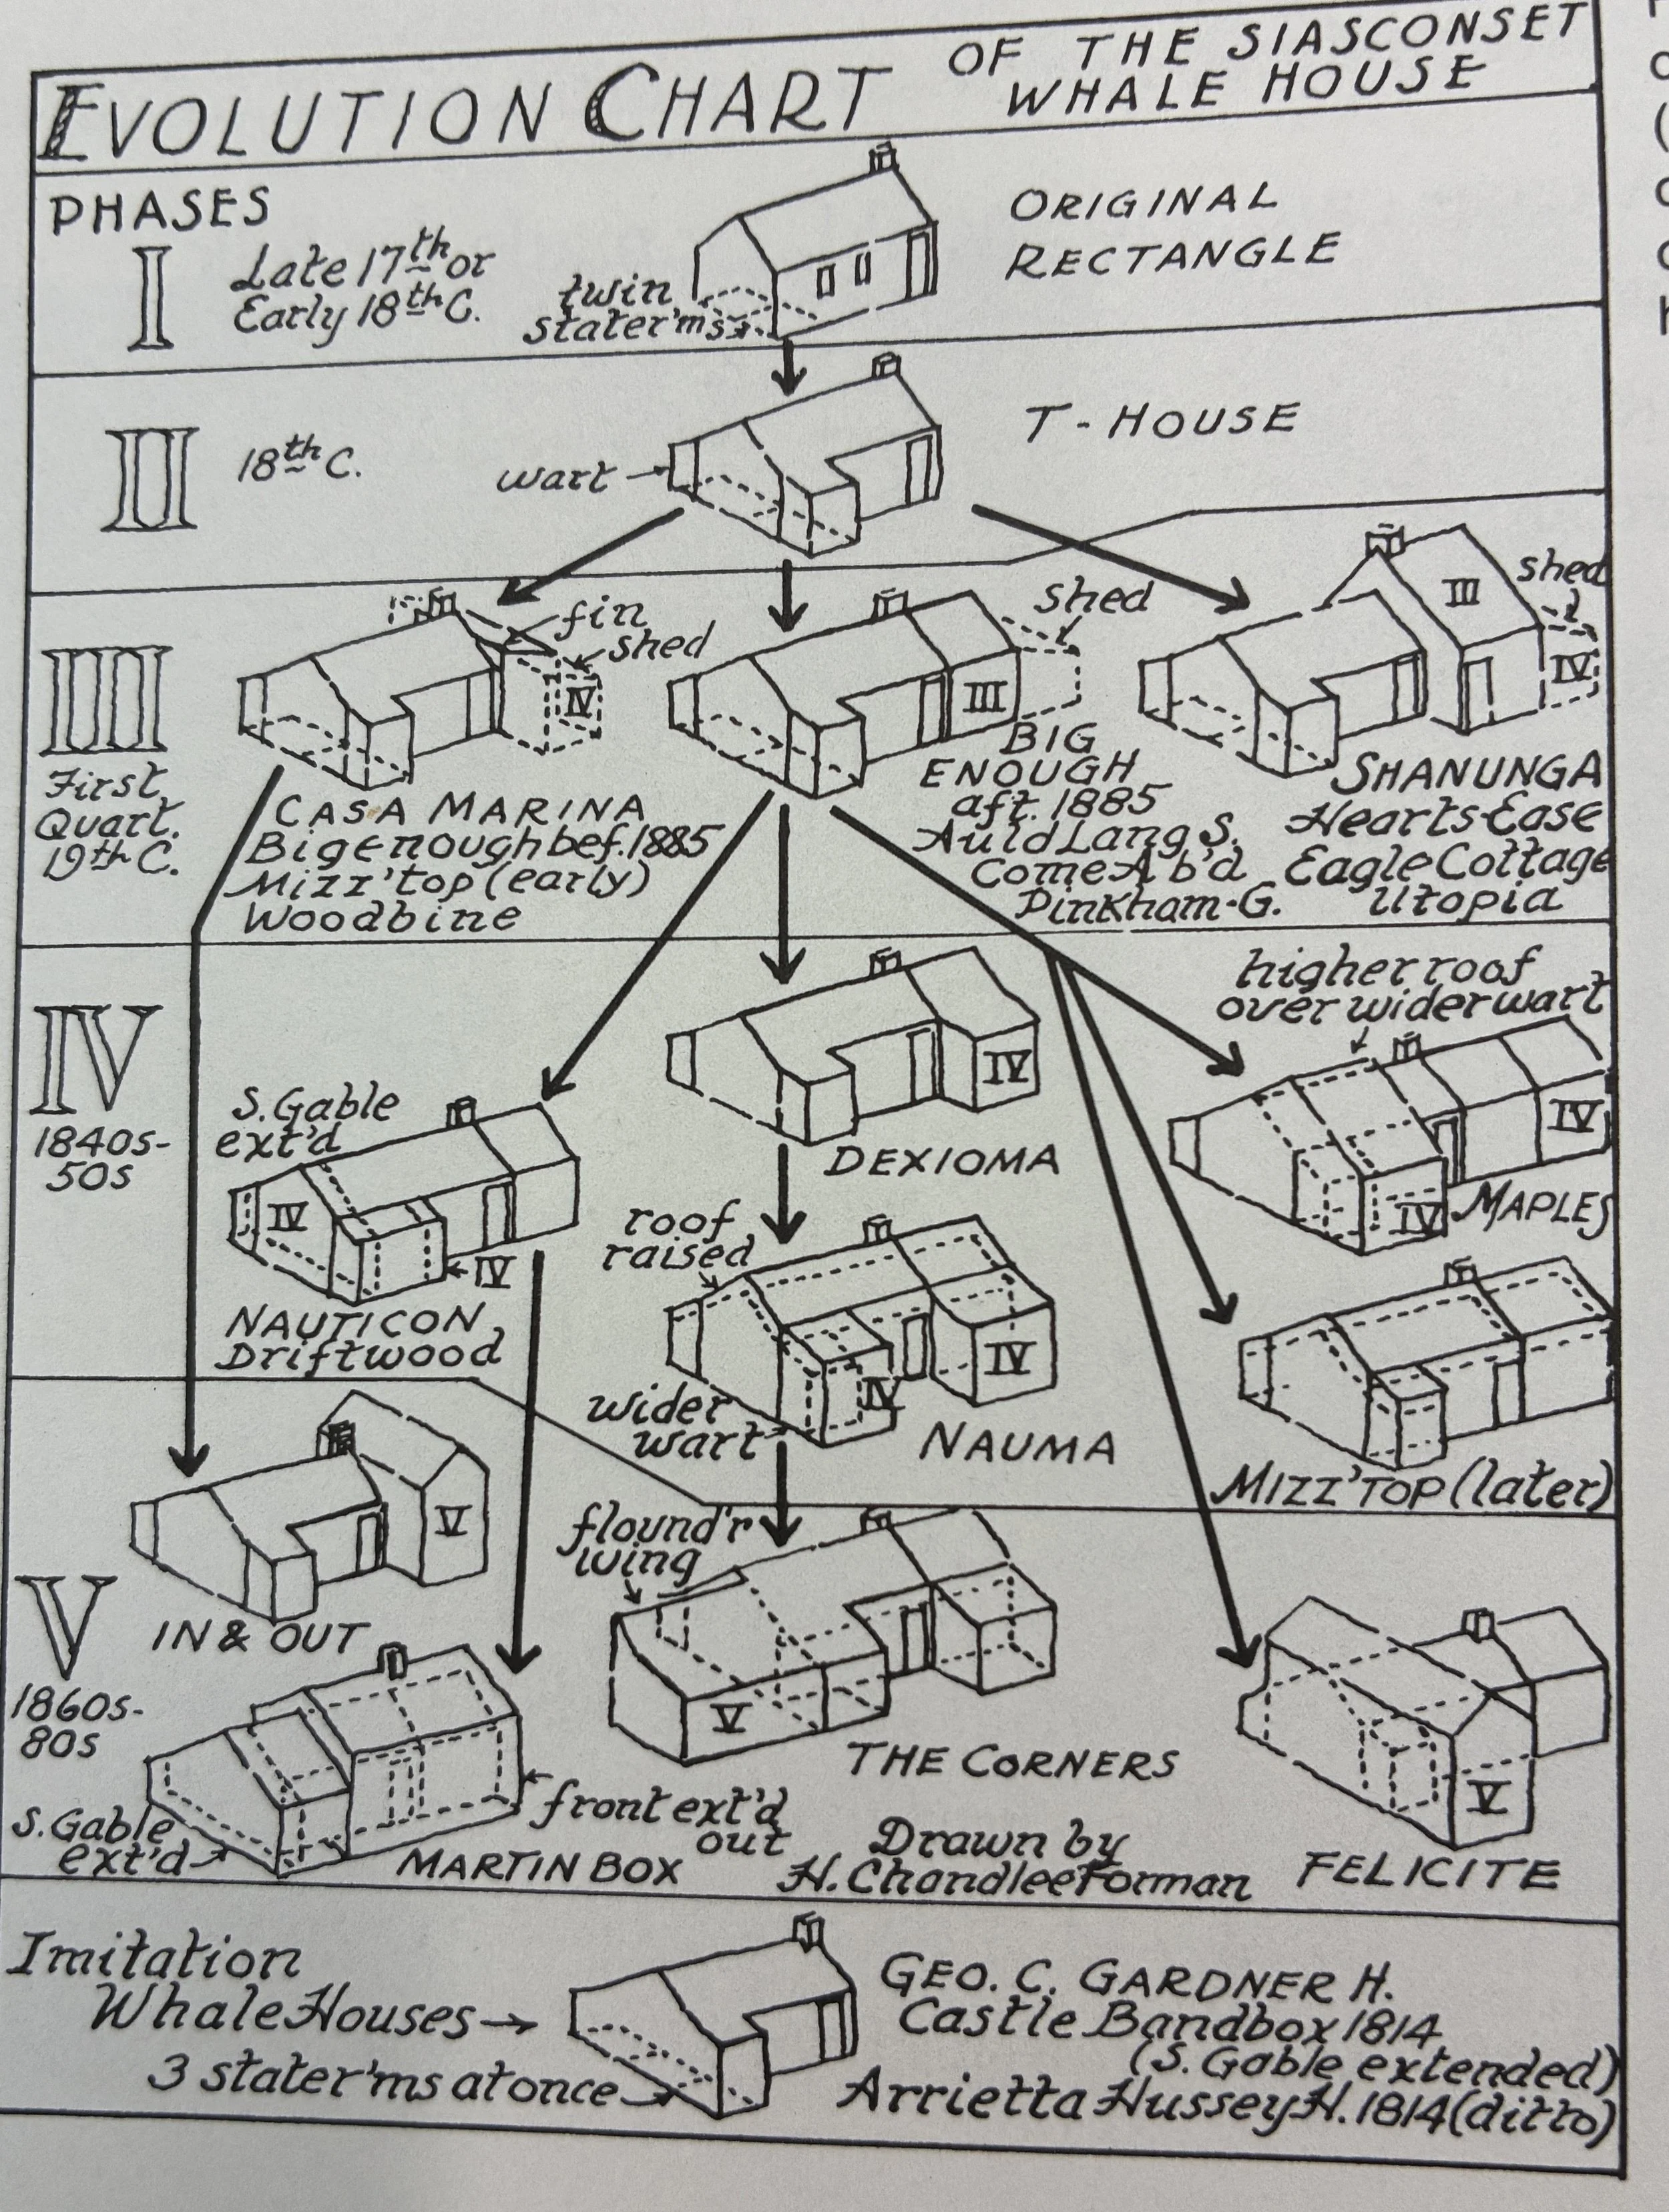 EVOLUTION CHART OF THE SIASCONSET
WHALE HOUSE
PHASES
I
Late 17th or
Early 18th C.
twin
stater'ms
ORIGINAL
RECTANGLE
II
18th C.
wart
T-HOUSE
III
First
Quart.
19th C.
fin
shed
IV
CASA MARINA
Bigenough bef. 1885
Mizz'top (early)
Woodbine
shed
III
BIG
ENOUGH
aft. 1885
Auld Lang S.
Come A b'd
Pinkham-G.
shed
III
IV
SHANUNGA
Hearts-Ease
Eagle Cottage
Utopia
IV
1840s-
50s
S. Gable
ext'd
IV
IV
NAUTICON
Driftwood
IV
DEXIOMA
roof
raised
wider
wart
IV
IV
NAUMA
higher roof
over wider wart
IV
IV
MAPLES
MIZZ'TOP (later)
V
1860s-
80s
V
IN & OUT
S. Gable
ext'd
front ext'd
out
MARTIN BOX
flound'r
wing
V
THE CORNERS
V
FELICITE
Drawn by
H. Chandlee Forman
Imitation
Whale Houses
3 stater'ms at once
GEO. C. GARDNER H.
Castle Bandbox 1814
(S. Gable extended)
Arrietta Hussey H. 1814 (ditto)